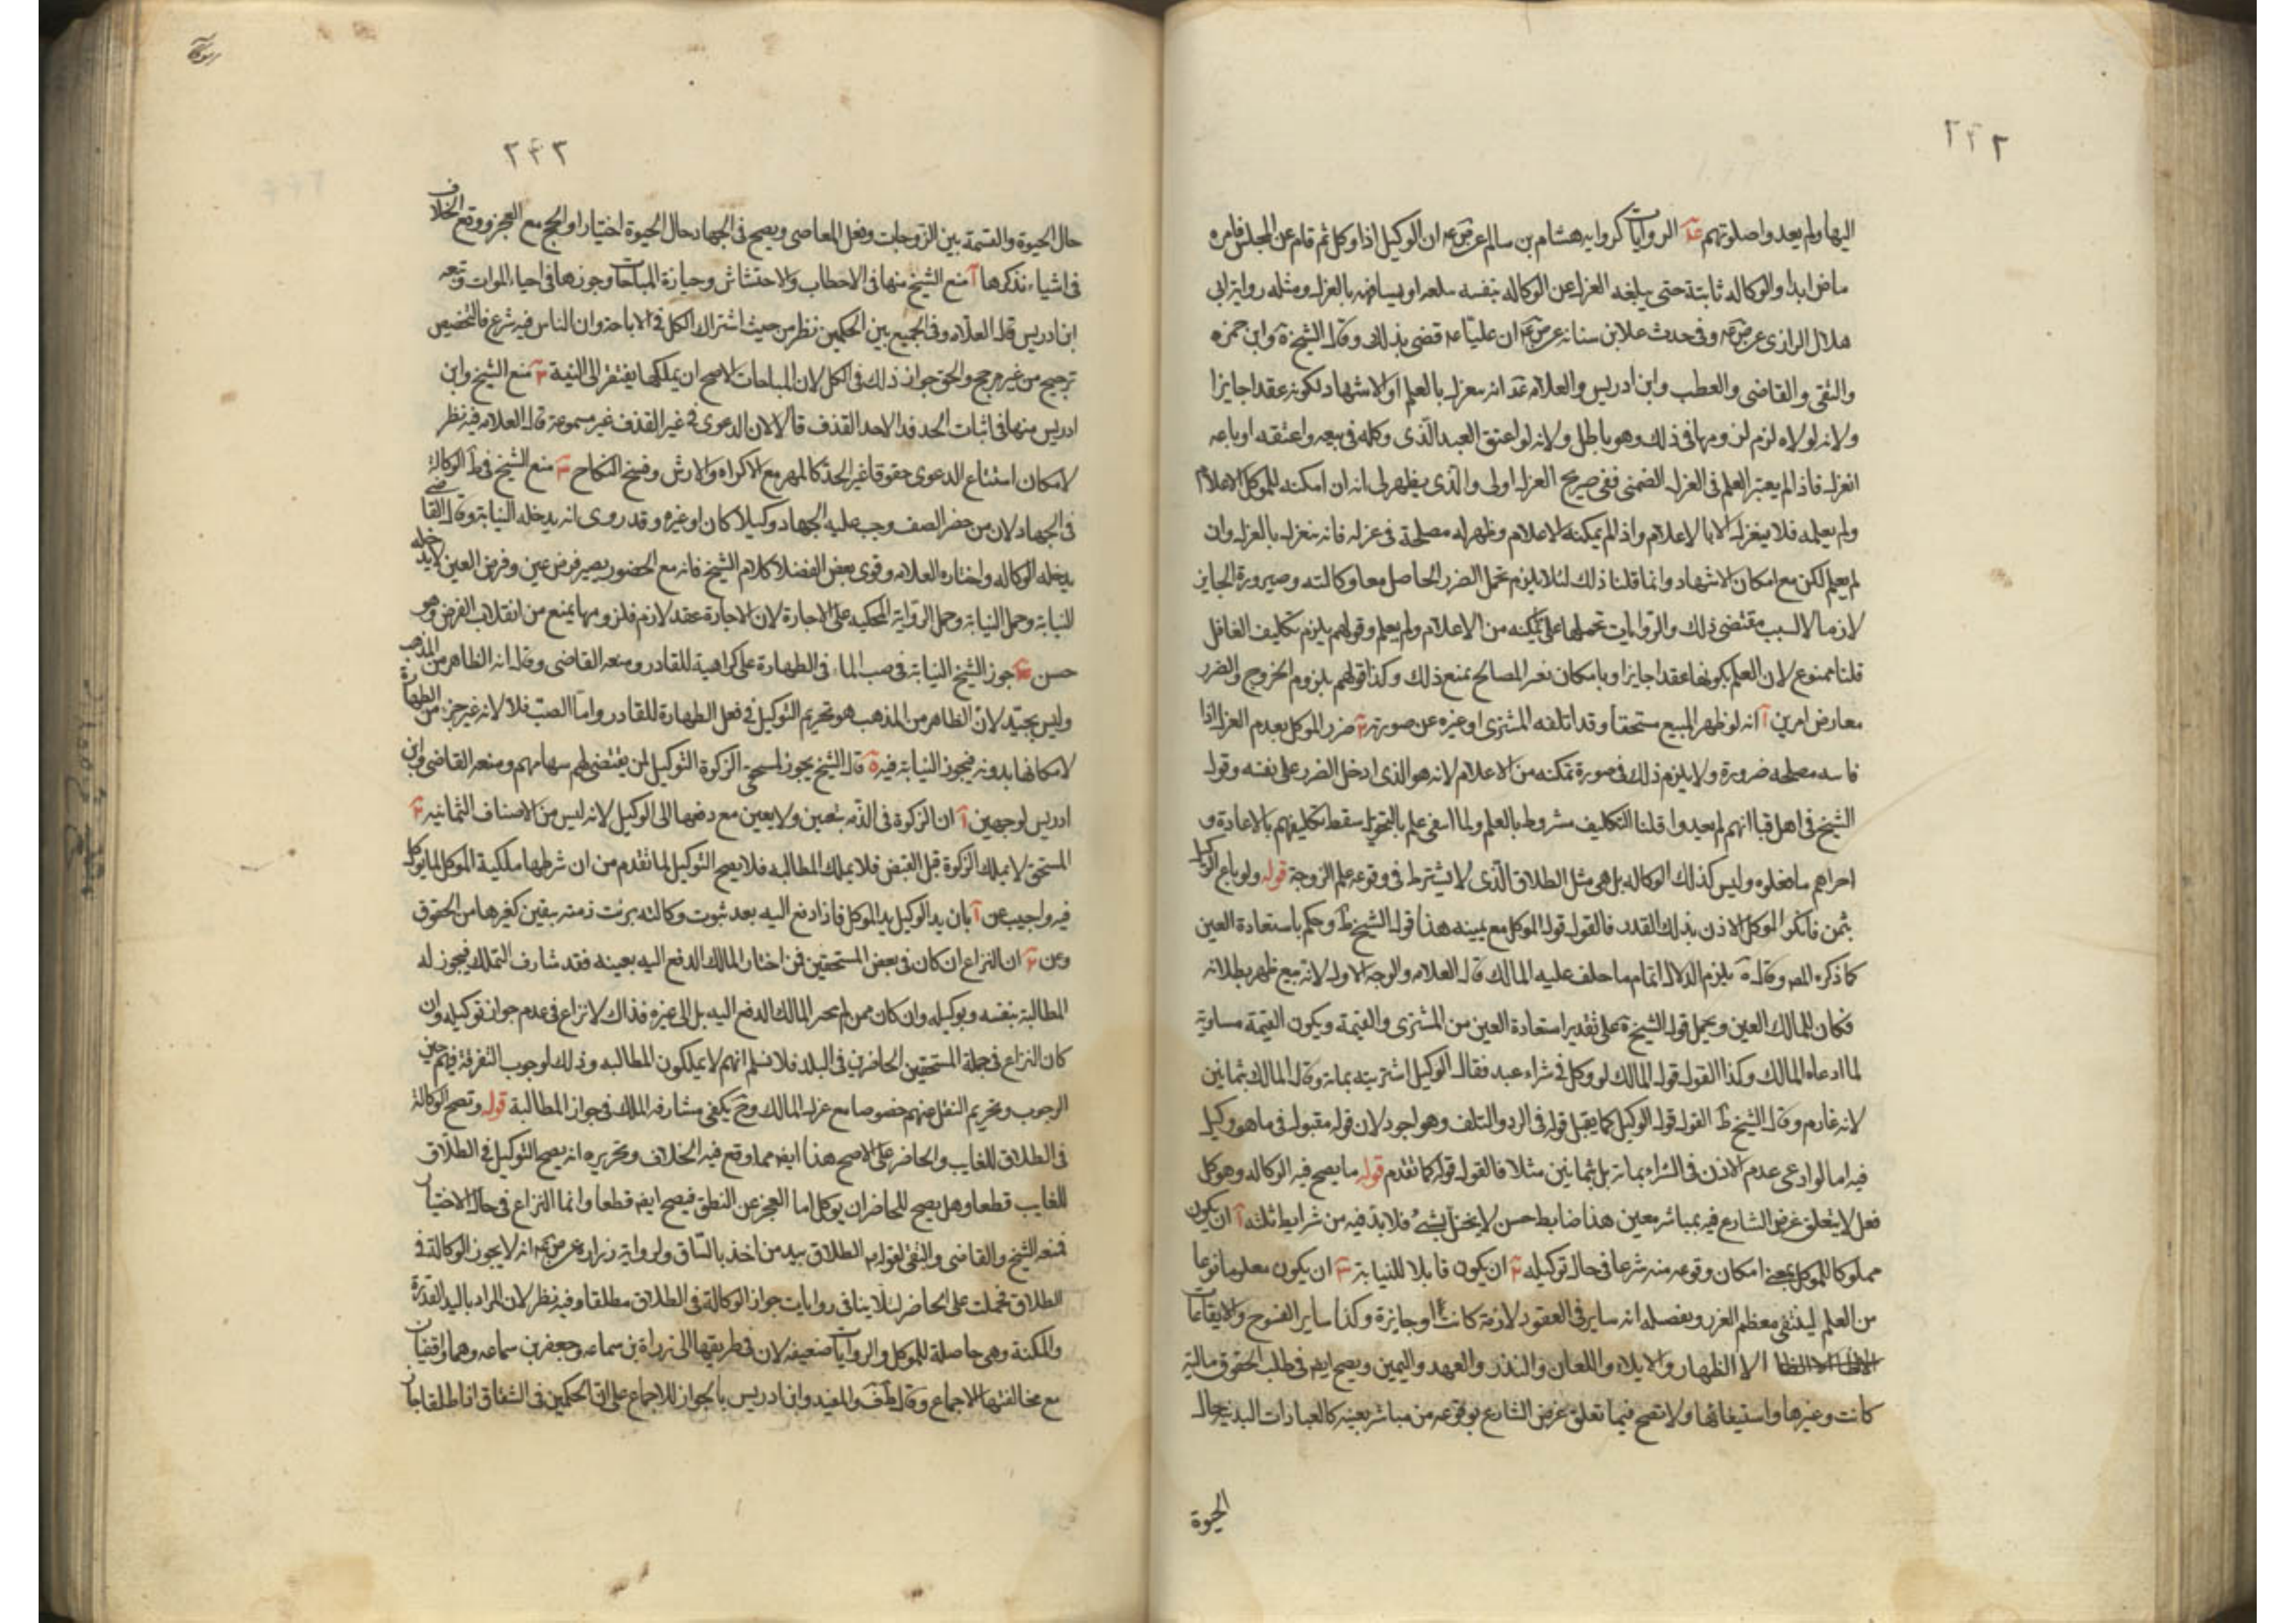 ٢٤٢
اليها ولم يعيدوا صلوتهم عد الروايات كرواية هشام بن سالم عن ص ع ان الوكيل اذا وكل ثم قام عن المجلس فامره
ماض ابدا والوكالة ثابتة حتى يبلغه العزل عن الوكالة بنفسه سلعه او يشافه بالعزل ومثله رواية ابي
هلال الرازي عن ص ع وفي حدث علا بن سنانه عن ص ع ان عليا ع قضى بذلك وقال الشيخ ة وابن حمزه
والتقى والقاضى والقطب وابن ادريس والعلامه عد انه ينعزل بالعلم او الاشهاد لكونه عقدا جايزا
ولانه لولاه لزم لزومها في ذلك وهو باطل ولانه لو اعتق العبد الذى وكله في بيعه واعتقه او باعه
انعزل فاذا لم يعتبر العلم في العزل الضمنى ففي صريح العزل اولى والذى يظهر لى انه ان امكنه للموكل الاعلام
ولم يعلمه فلا ينعزل الا بالاعلام واذا لم يمكنه الاعلام وظهر له مصلحة في عزله فانه ينعزل بالعزل وان
لم يعلم لكن مع امكان الاشهاد وانما قلنا ذلك لئلا يلزم تحمل الضرر الحاصل معا وكالته وصيرورة الجايز
لازما لا لسبب مقتضى ذلك والروايات تحملها على تمكنه من الاعلام ولم يعلم وقولهم يلزم تكليف الغافل
قلنا ممنوع لان العلم بكونها عقدا جايزا وبامكان تغير المصالح يمنع ذلك وكذا قولهم يلزوم الخروج والضرر
معارض امرين آ انه لو ظهر المبيع مستحقا وقد اتلفه المشترى او غيره عن صورته ٢ ضرر الموكل بعدم العزل اذا
فاسد مصلحه ضرورة ولا يلزم ذلك في صورة تمكنه من الاعلام لانه هو الذى ادخل الضرر على نفسه وقول
الشيخ في اهل قبا انهم لم يعيدوا قلنا التكليف مشروط بالعلم ولما انتفى علم بالتحويل سقط تكليفهم بالاعادة و
اجزاهم ما فعلوه وليس كذلك الوكالة بل هي مثل الطلاق الذى لا يشترط في وقوعه علم الزوجة قوله ولو باع الوكيل
بثمن فانكر الموكل الاذن بذلك القدر فالقول قول الموكل مع يمينه هذا قول الشيخ ط وحكم باستعادة العين
كما ذكره المص وقال ة يلزم الدلال اتمام ما حلف عليه المالك قال العلامه والوجه الاول لانه بيع ظهر بطلانه
فكان للمالك العين ويحمل قول الشيخ ة على تقدير استعادة العين من المشترى والقيمة ويكون القيمة مساوية
لما ادعاه المالك وكذا القول قول المالك لو وكل في شراء عبد فقال الوكيل اشتريته بمائة وقال المالك بثمانين
لانه غارم وقال الشيخ ط القول قول الوكيل كما يقبل قوله في الرد والتلف وهو اجود لان قوله مقبول في ما هو وكيل
فيه اما لو ادعى عدم الاذن في الشراء بمائة بل بثمانين مثلا فالقول قوله كما تقدم قوله ما يصح فيه الوكالة وهو كل
فعل لا يتعلق غرض الشارع فيه بمباشر معين هذا ضابط حسن لا يختل بشىء فلا بد فيه من شرايط ثلثه آ ان يكون
مملوكا للموكل بمعنى امكان وقوعه منه شرعا في حال توكيله ٢ ان يكون قابلا للنيابة ٣ ان يكون معلوما نوعا
من العلم لينتفى معظم الغرر وتفصيله انه ساير في العقود لازمة كانت او جايزة وكذا ساير الفسوخ والايقاعات
الا الظهار والايلاء واللعان والنذر والعهد واليمين ويصح ايض في طلب الحقوق مالية
كانت وغيرها واستيفائها ولا تصح فيما تعلق غرض الشارع بوقوعه من مباشر بعينه كالعبادات البدنيه حال
الحيوة
٢٤٣
حال الحيوة والقسمة بين الزوجات وفعل المعاصى ويصح في الجهاد حال الحيوة اختيارا والحج مع العجز ووقع الخلاف
في اشياء نذكرها آ منع الشيخ منها في الاحطاب والاحتشاش وحيازة المباحات وجوزها في احياء الموات وتبعه
ابن ادريس قال العلامه وفي الجمع بين الحكمين نظر من حيث اشتراك الكل في الاباحة وان الناس فيه شرع فالتخصيص
ترجيح من غير مرجح والحق جواز ذلك في الكل لان المباحات لاصح ان يملكها يفتقر الى النية ٢ منع الشيخ وابن
ادريس منها في اثبات الحدود الا حد القذف قالا لان الدعوى في غير القذف غير مسموعة قال العلامه فيه نظر
لامكان استتباع الدعوى حقوقا غير الحد كالمهر مع الاكراه والارش وفسخ النكاح ٣ منع الشيخ في ط الوكالة
في الجهاد لان من حضر الصف وجب عليه الجهاد وكيلا كان او غيره وقد روى انه يدخله النيابة وقال القاضى
يدخله الوكاله واختاره العلامه وقوى بعض الفضلا كلام الشيخ فانه مع الحضور يصير فرض عين وفرض العين لا يدخله
للنيابة وحمل النيابة وحمل الرواية المحكيه على الاجارة لان الاجارة عقد لازم فلزومها يمنع من انقلاب الفرض وهو
حسن ٤ جوز الشيخ النيابة في صب الماء في الطهارة على كراهية للقادر ومنعه القاضى وقال انه الظاهر من المذهب
وليس بجيد لان الظاهر من المذهب هو تحريم التوكيل في فعل الطهارة للقادر واما الصب فلا لانه غير جزء من الطهارة
لامكانها بدونه فيجوز النيابة فيه ة قال الشيخ يجوز لمستحق الزكوة التوكيل لمن يقتضى لهم سهامهم ومنعه القاضى وابن
ادريس لوجهين آ ان الزكوة في الذمه يتعين ولا يعين مع دفعها الى الوكيل لانه ليس من الاصناف الثمانيه ٢
المستحق لا يملك الزكوة قبل القبض فلا يملك المطالبه فلا يصح التوكيل لما تقدم من ان شرطها ملكية الموكل لما يوكل
فيه واجيب عن آ بان يد الوكيل يد الموكل فاذا دفع اليه بعد ثبوت وكالته برئت ذمته بيقين كغيرها من الحقوق
وعن ٢ ان النزاع ان كان في بعض المستحقين فمن اختار المالك الدفع اليه بعينه فقد شارف التملك فيجوز له
المطالبة بنفسه وبوكيله وان كان ممن لم يختر المالك الدفع اليه بل الى غيره فذاك لا نزاع في عدم جواز توكيله وان
كان النزاع في جملة المستحقين الحاضرين في البلد فلا نسلم انهم لا يملكون المطالبه وذلك لوجوب التفرقة فيهم حين
الوجوب وتحريم النقل عنهم خصوصا مع عزل المالك وح يكفى مشارفه الملك في جواز المطالبة قوله وتصح الوكالة
في الطلاق للغايب والحاضر على الاصح هذا ايض مما وقع فيه الخلاف وتحريره انه يصح التوكيل في الطلاق
للغايب قطعا وهل يصح للحاضر ان يوكل اما العجز عن النطق فيصح ايض قطعا وانما النزاع في حال الاختيار
فمنعه الشيخ والقاضى والتقى لقوله ع الطلاق بيد من اخذ بالساق ولرواية زراره عن ص ع انه لا يجوز الوكالة في
الطلاق فحملت على الحاضر لئلا ينافى روايات جواز الوكالة في الطلاق مطلقا وفيه نظر لان المراد باليد القدرة
والمكنة وهي حاصلة للموكل والروايات ضعيفه لان في طريقها الى زرارة بن سماعه وجعفر بن سماعه وهما واقفيان
مع مخالفتها الاجماع وقال والمفيد وابن ادريس بالجواز للاجماع على ان الحكمين في الشقاق اذا طلقا جاز